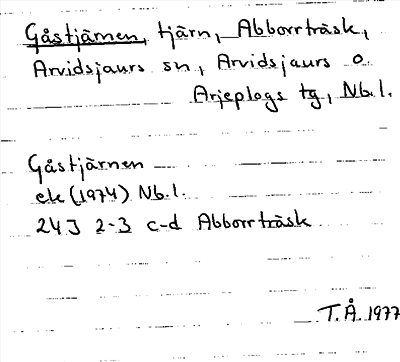 Gåstjärnen, tjärn, Abborrträsk,
Arvidsjaurs sn, Arvidsjaurs o
Arjeplogs tg, Nb.l.
Gåstjärnen
ek (1974) Nb.l.
24J 2-3 c-d Abborrträsk
T.Å. 1977